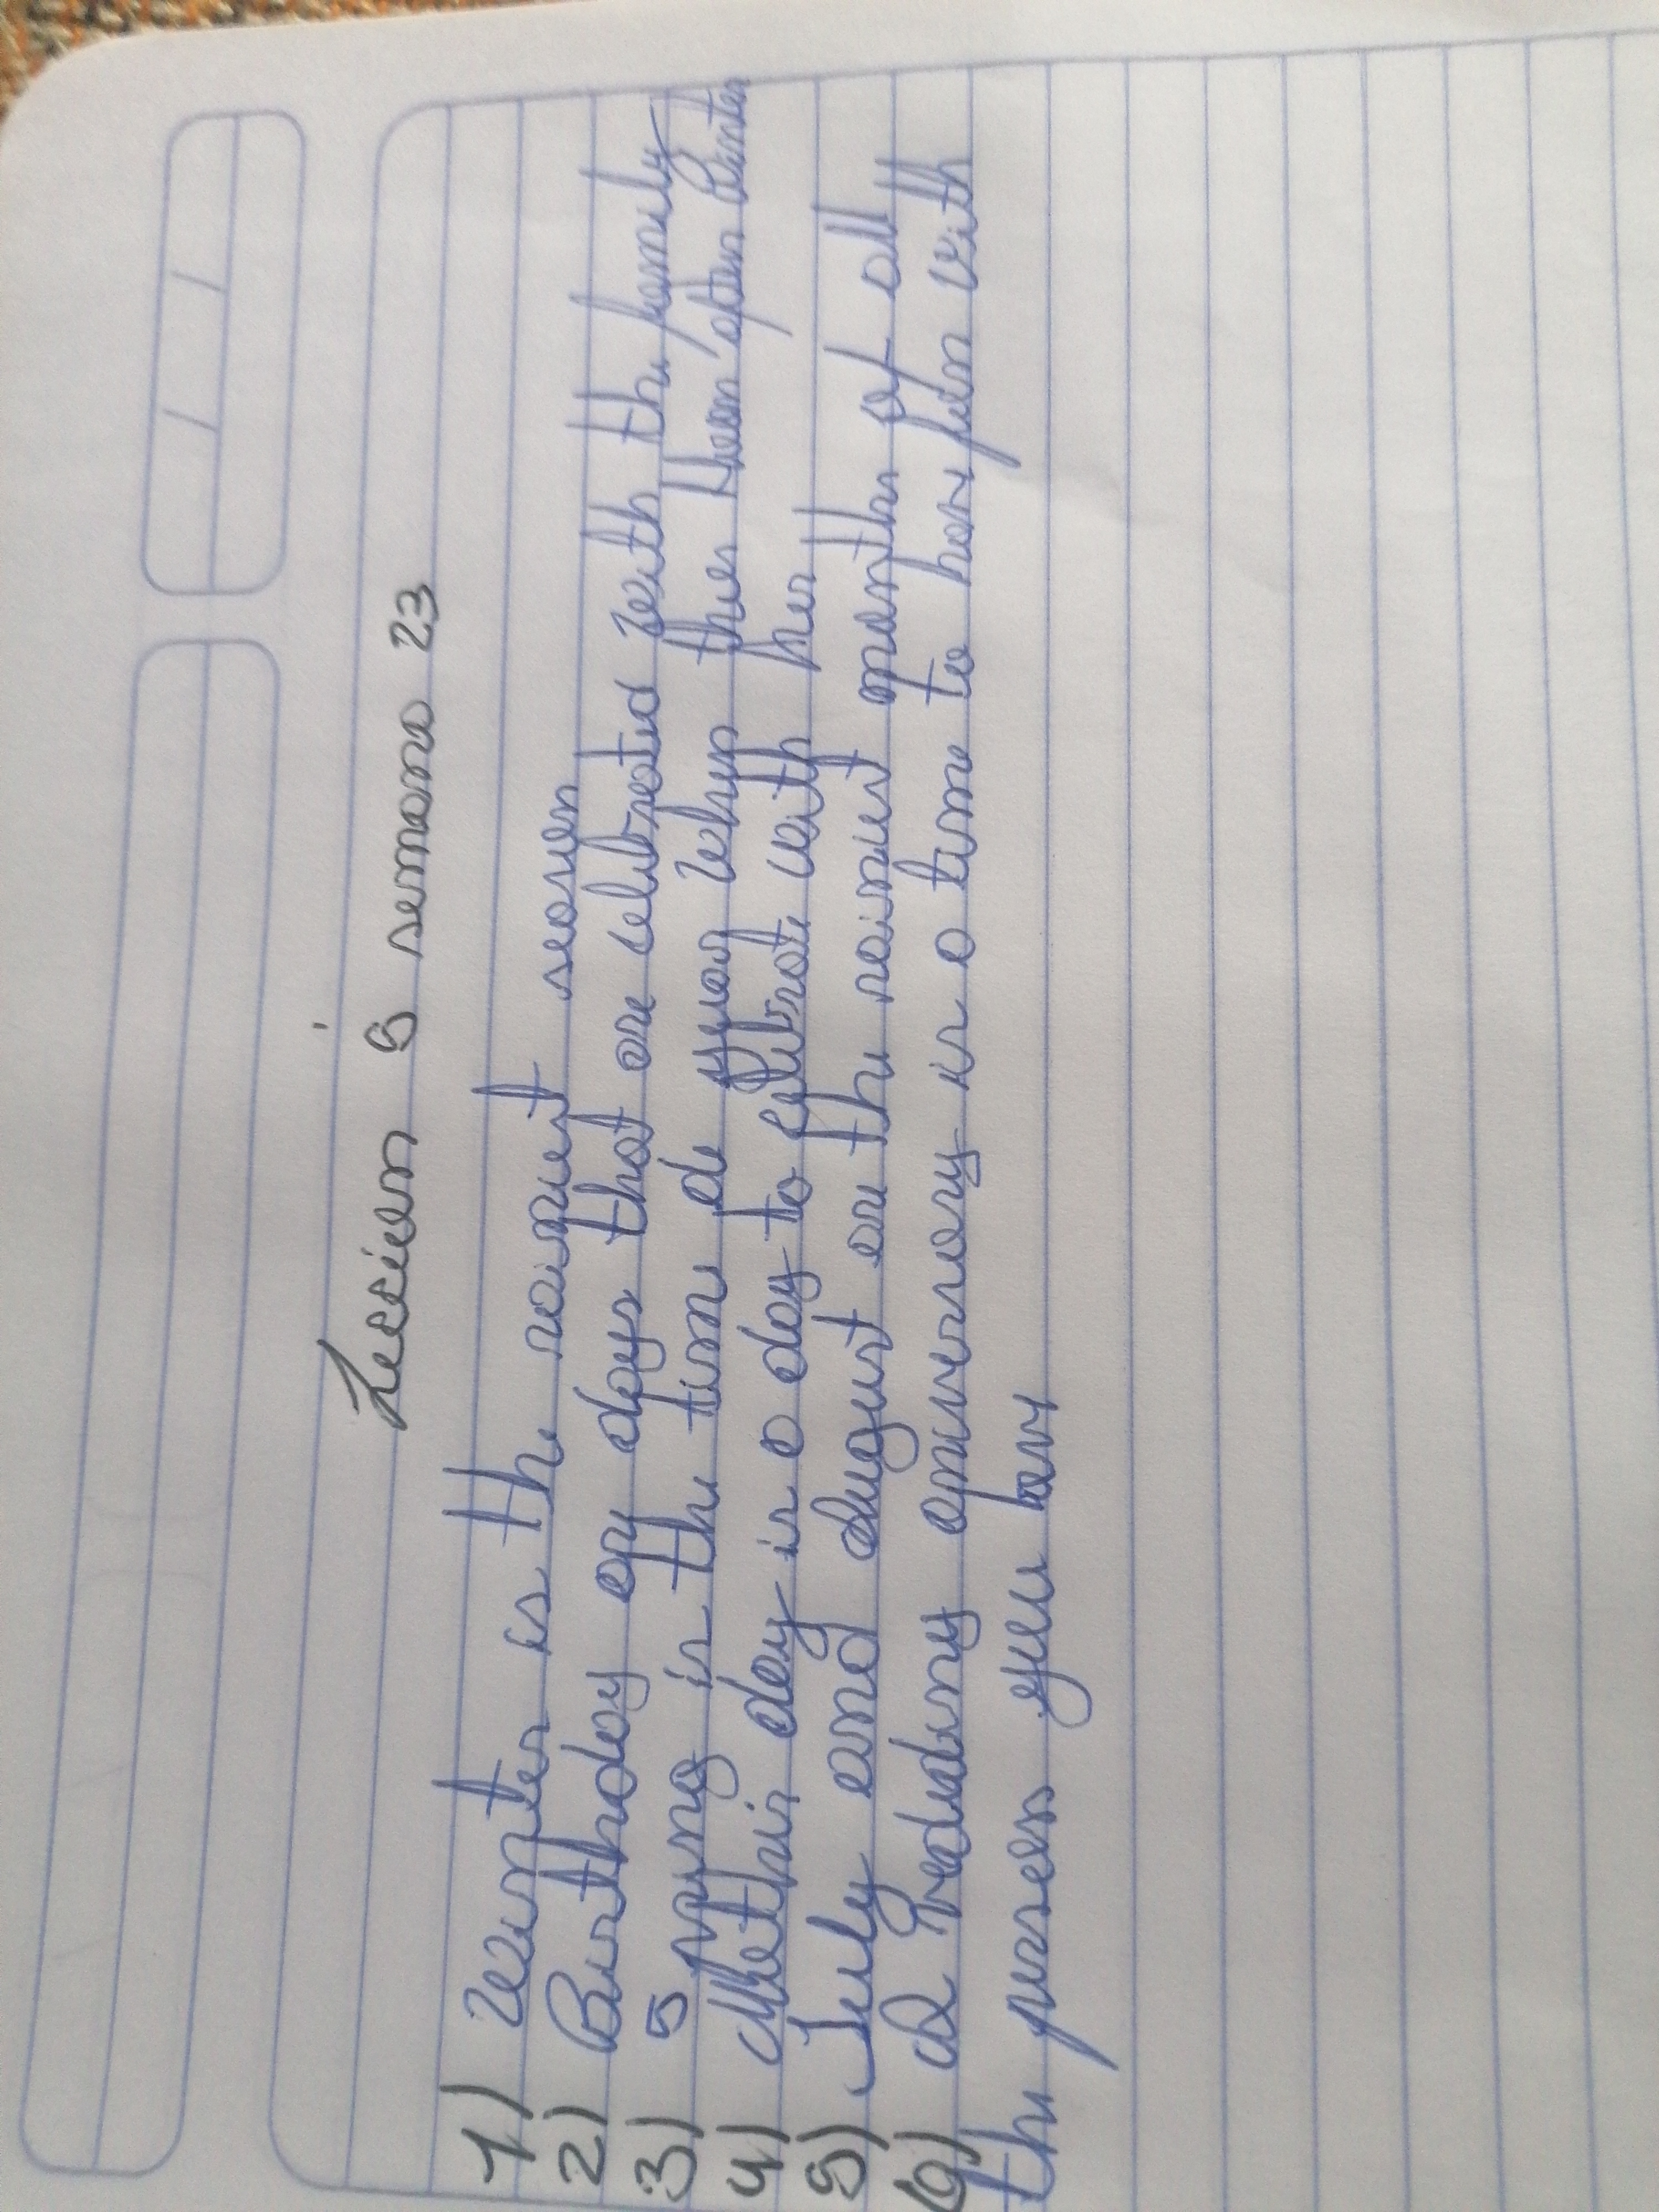 Leccion 6 semana 23
1) winter is the rainiest season
2) Birthday are days that are celebrated with the family
3) Spring is the time de year when the after winter
4) Mother day is a day to celebrate with her
5) July and August are the rainiest months of all
6) A wedding anniversary is a time to have fun with
the person you love